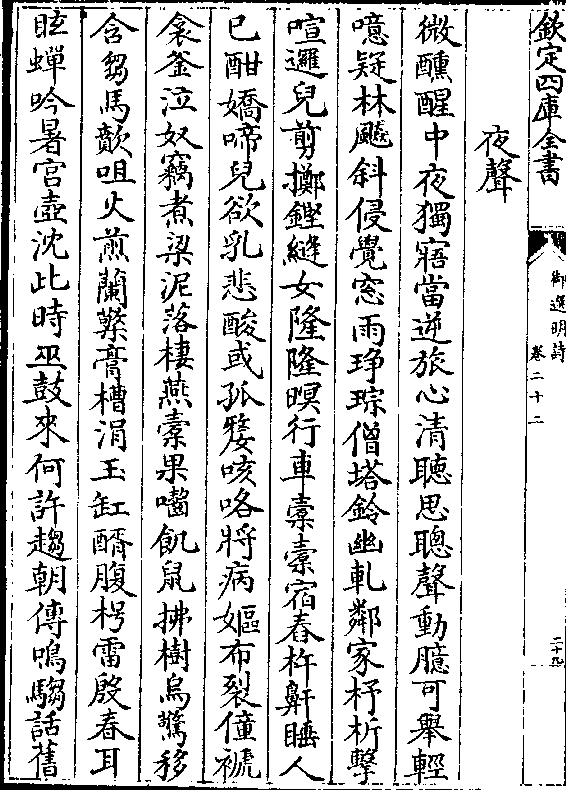 欽定四庫全書
御選明詩
卷二十二
二十九
夜聲
微醺醒中夜獨寤當逆旅心清聽思聰聲動臆可舉輕
噫疑林飇斜侵覺窓雨琤琮僧塔鈴幽軋鄰家杼柝擊
喧邏兒剪擲鏗縫女隆隆暝行車橐橐宿舂杵鼾睡人
已酣嬌啼兒欲乳悲酸或孤嫠咳咯將病嫗布裂僮褫
衾釜泣奴竊煮梁泥落棲燕橐果嚙飢鼠拂樹烏驚移
含芻馬齕咀火煎蘭檠膏槽涓玉缸醑腹枵雷殷舂耳
眩蟬吟暑宮壺沈此時巫鼓來何許趨朝傳鳴騶話舊